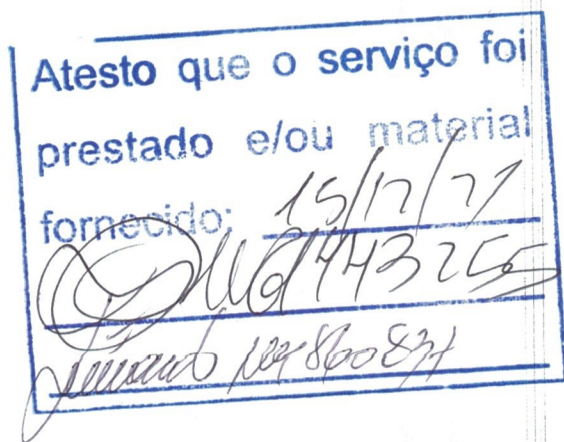 Atesto que o serviço foi
prestado e/ou material
fornecido: 15/12/21
443255
860837